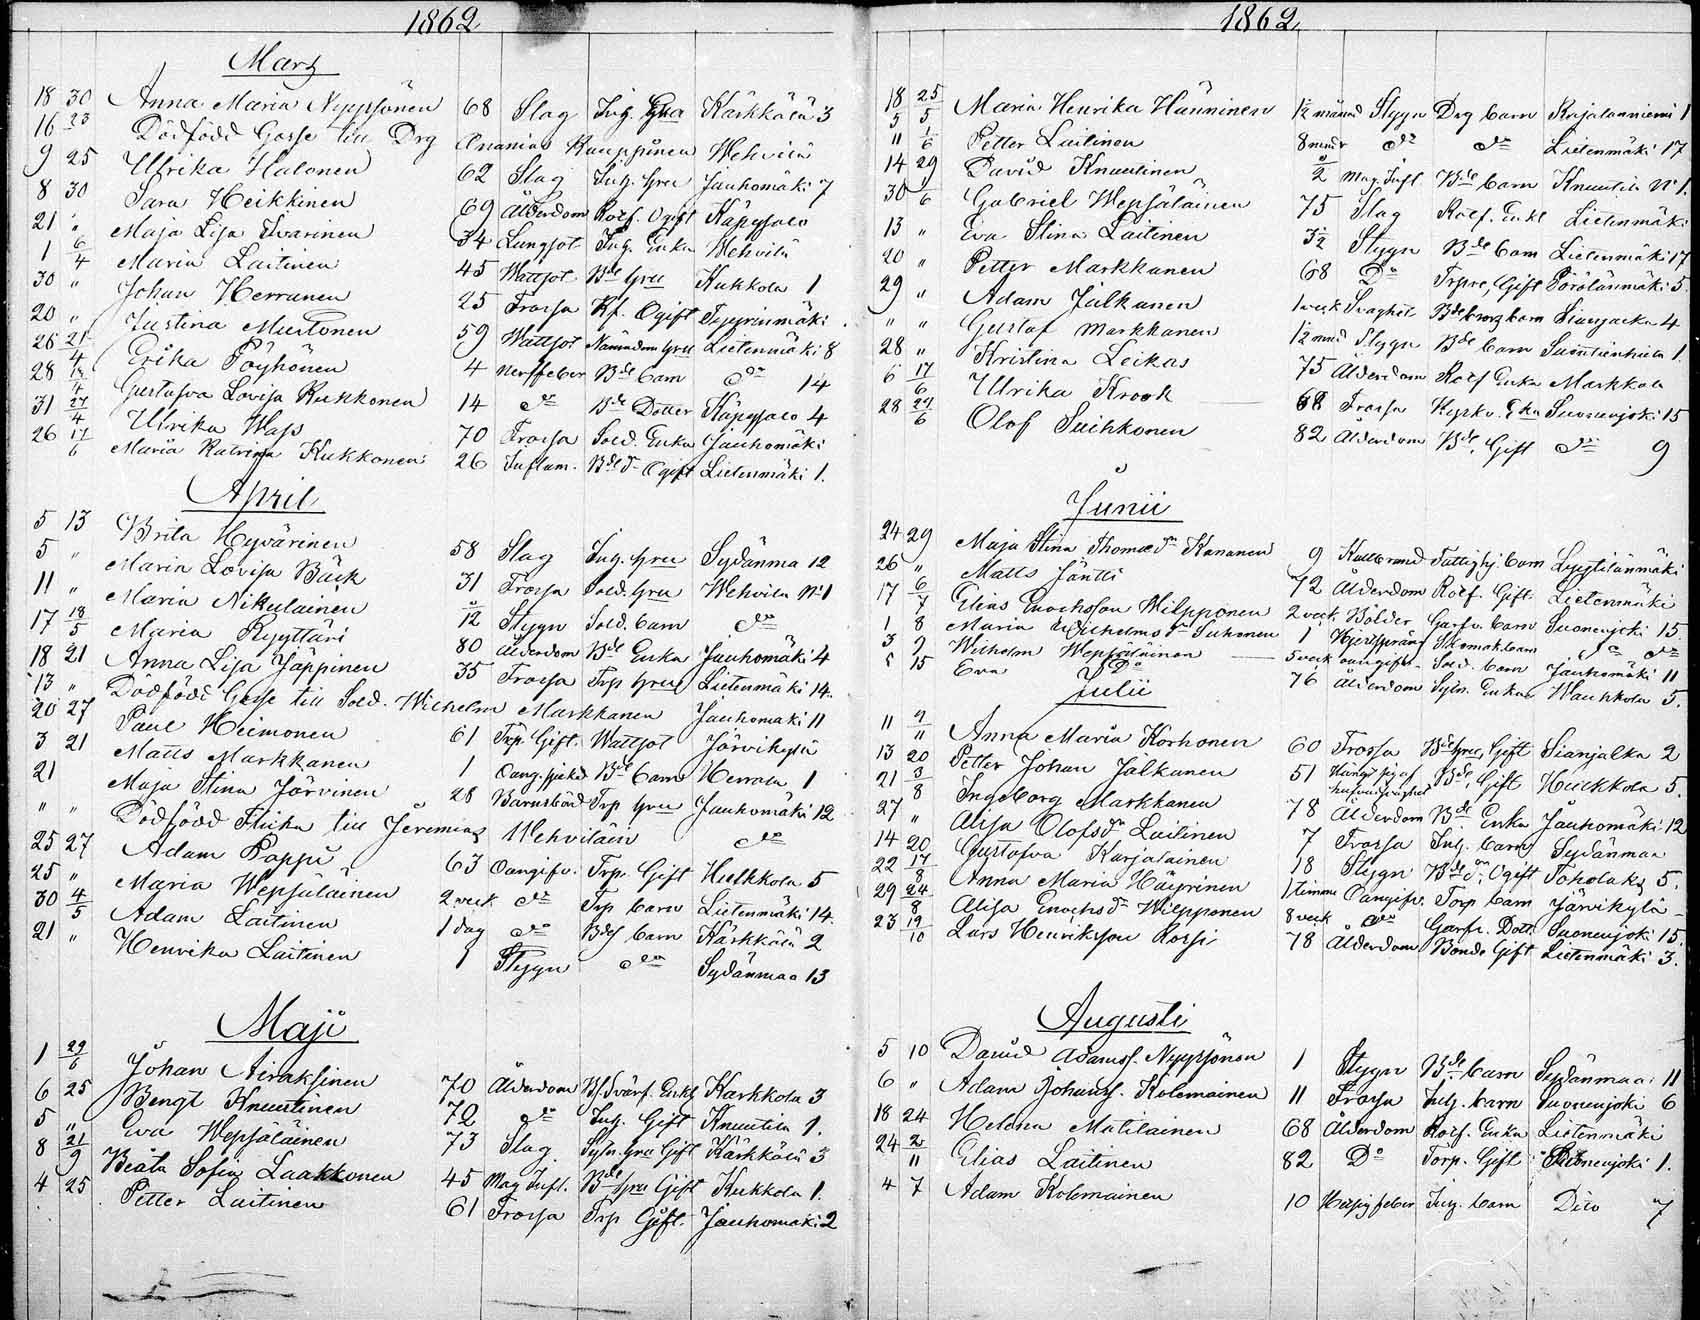 1862
Mars
18 30 Anna Maria Nyyssönen 68 Slag Inh. Kärkkälä 3
16 23 Dödfödd Gosse till Drg Ananias Kauppinen Wehvilä
9 25 Ulrika Halonen 62 Slag Inh. hru Jauhomäki 7
8 30 Sara Heikkinen 69 Ålderdom Rotf. Ogift Käpysalo
21 " Maja Lisa Ivarinen 34 Lungsot Inh. Enka Wehvilä
1 6/4 Maria Laitinen 45 Wattsot Bde hru Kukkola 1
30 " Johan Herranen 25 Frossa Ogift Tyyrinmäki
20 " Justina Mustonen 59 Wattsot Nämndem hru Lietenmäki 8
26 21/4 Erika Pöyhönen 4 Nerffeber Bde barn do 14
28 /4 Gustafva Lovisa Kukkonen 14 do Bde Dotter Käpysalo 4
31 27/4 Ulrika Wass 70 Frossa Sold. Enka Jauhomäki
26 17/6 Maria Katrina Kukkonen 26 Inflam. Ogift Lietenmäki 1.
April
5 13 Brita Hyvärinen 58 Slag Inh. hru Sydänma 12
5 " Maria Lovisa Bäck 31 Frossa Sold. hru Wehvilä No 1
11 " Maria Nikulainen /12 Stygn Sold. barn do
17 18/5 Maria Ryyttäri 80 Ålderdom Bde Enka Jauhomäki 4
18 21 Anna Lisa Jäppinen 35 Frossa Trp hru Lietenmäki 14.
13 " Dödfödd Gosse till Sold. Wilhelm Markkanen Jauhomäki 11
20 27 Paul Heimonen 61 Trp. Gift. Wattsot Järvikylä
3 21 Matts Markkanen 1 Bde barn Herrala 1
21 Maja Stina Järvinen 28 Barnsbörd Trp hru Jauhomäki 12
" " Dödfödd Flicka till Jeremias Wehviläin do
25 27 Adam Pappi 63 Oangifv. Trp. Gift Hulkkola 5
25 " Maria Wepsäläinen 2 veck do Trp barn Lietenmäki 14.
30 4/5 Adam Laitinen 1 dag do Bds barn Kärkkälä 2
21 " Henrika Laitinen 1 Stygn do Sydänmaa 13
Maji
1 29/6 Johan Airaksinen 70 Ålderdom Enkl Karkkola 3
6 25 Bengt Knuutinen 72 do Inh. Gift Knuutila 1.
5 " Eva Wepsäläinen 73 Slag Sytn. hru Gift Kärkkälä 3
8 21/9 Beata Sofia Laakkonen 45 Mag Infl. Bde hru Gift Kukkola 1.
4 25 Petter Laitinen 61 Frossa Trp Gift. Jauhomäki 2
1862
18 25/5 Maria Henrika Hänninen 1½ månad Stygn Drg barn Rajalanniemi 1
11 1/6 Petter Laitinen 8 do do Lietenmäki 17
14 29 David Knuutinen /2 Mag. Infl Bde barn Knuutila No 1.
30 /6 Gabriel Wepsäläinen 75 Slag Rotf. Enkl Lietenmäki
13 " Eva Stina Laitinen 3½ Stygn Bde barn Lietenmäki 17
20 " Petter Markkanen 68 Do Gift Pörölänmäki 5.
29 " Adam Jalkanen 1 veck Svaghet barn Sianjalka 4
" " Gustaf Markkanen 1½ Stygn Bde barn 1.
28 " Kristina Leikas 75 Ålderdom Rotf Enka Markkala
6 17/6 Ulrika Krook 68 Frossa Kyrkv. Eka Suonenjoki 15
28 29/6 Olof Suihkonen 82 Ålderdom Bde, Gift do 9
Junii
24 29 Maja Stina Thomasdr Kananen 9 Kallbrand Fattighj. barn Lyytilänmäki
26 " Matts Jäntti 72 Ålderdom Rotf. Gift. Lietenmäki
17 6/7 Elias Enochsson Wilpponen 2 veck Bölder Garfv. barn Suonenjoki 15.
1 8 Maria Wilhelmsdr Suhonen 1 Hjertsprång Skomak. barn do do
3 9 Wilhelm Wepsäläinen 5 veck oangifv. Sold. barn Jauhomäki 11
15 Eva Do 76 Ålderdom Sytn. Enka Wauhkola 5.
Julii
11 Anna Maria Korhonen 60 Frossa Bde hru, Gift Sianjalka 2
13 20 Petter Johan Jalkanen 51 Bde, Gift Hulkkola 5.
21 3/8 Ingeborg Markkanen 78 Ålderdom Bde. Enka Jauhomäki 12
27 " Alisa Olofsdr Laitinen 7 Frossa Inh. barn Sydänmaa
14 20 Gustafva Karjalainen 18 Stygn Bde dr, Ogift Toholaks 5.
22 17/8 Anna Maria Häyrinen 1 timme Oangifv. Torp barn Järvikylä
29 24/8 Alisa Enochsdr Wilpponen 8 veck do Garfv. Dott. Suonenjoki 15.
23 19/10 Lars Henriksson Rossi 78 Ålderdom Bonde Gift Lietenmäki 3.
Augusti
5 10 David Adamss. Nyyssönen 1 Stygn Bde barn Sydänmaa 11
6 " Adam Johanss. Kolomainen 11 Frossa Inh. barn Suonenjoki 6
18 24 Helena Matilainen 68 Ålderdom Rotf. Enka Lietenmäki
24 2/11 Elias Laitinen 82 Do Torp. Gift Suonenjoki 1.
4 7 Adam Kolomainen 10 Inh. barn Dito 7